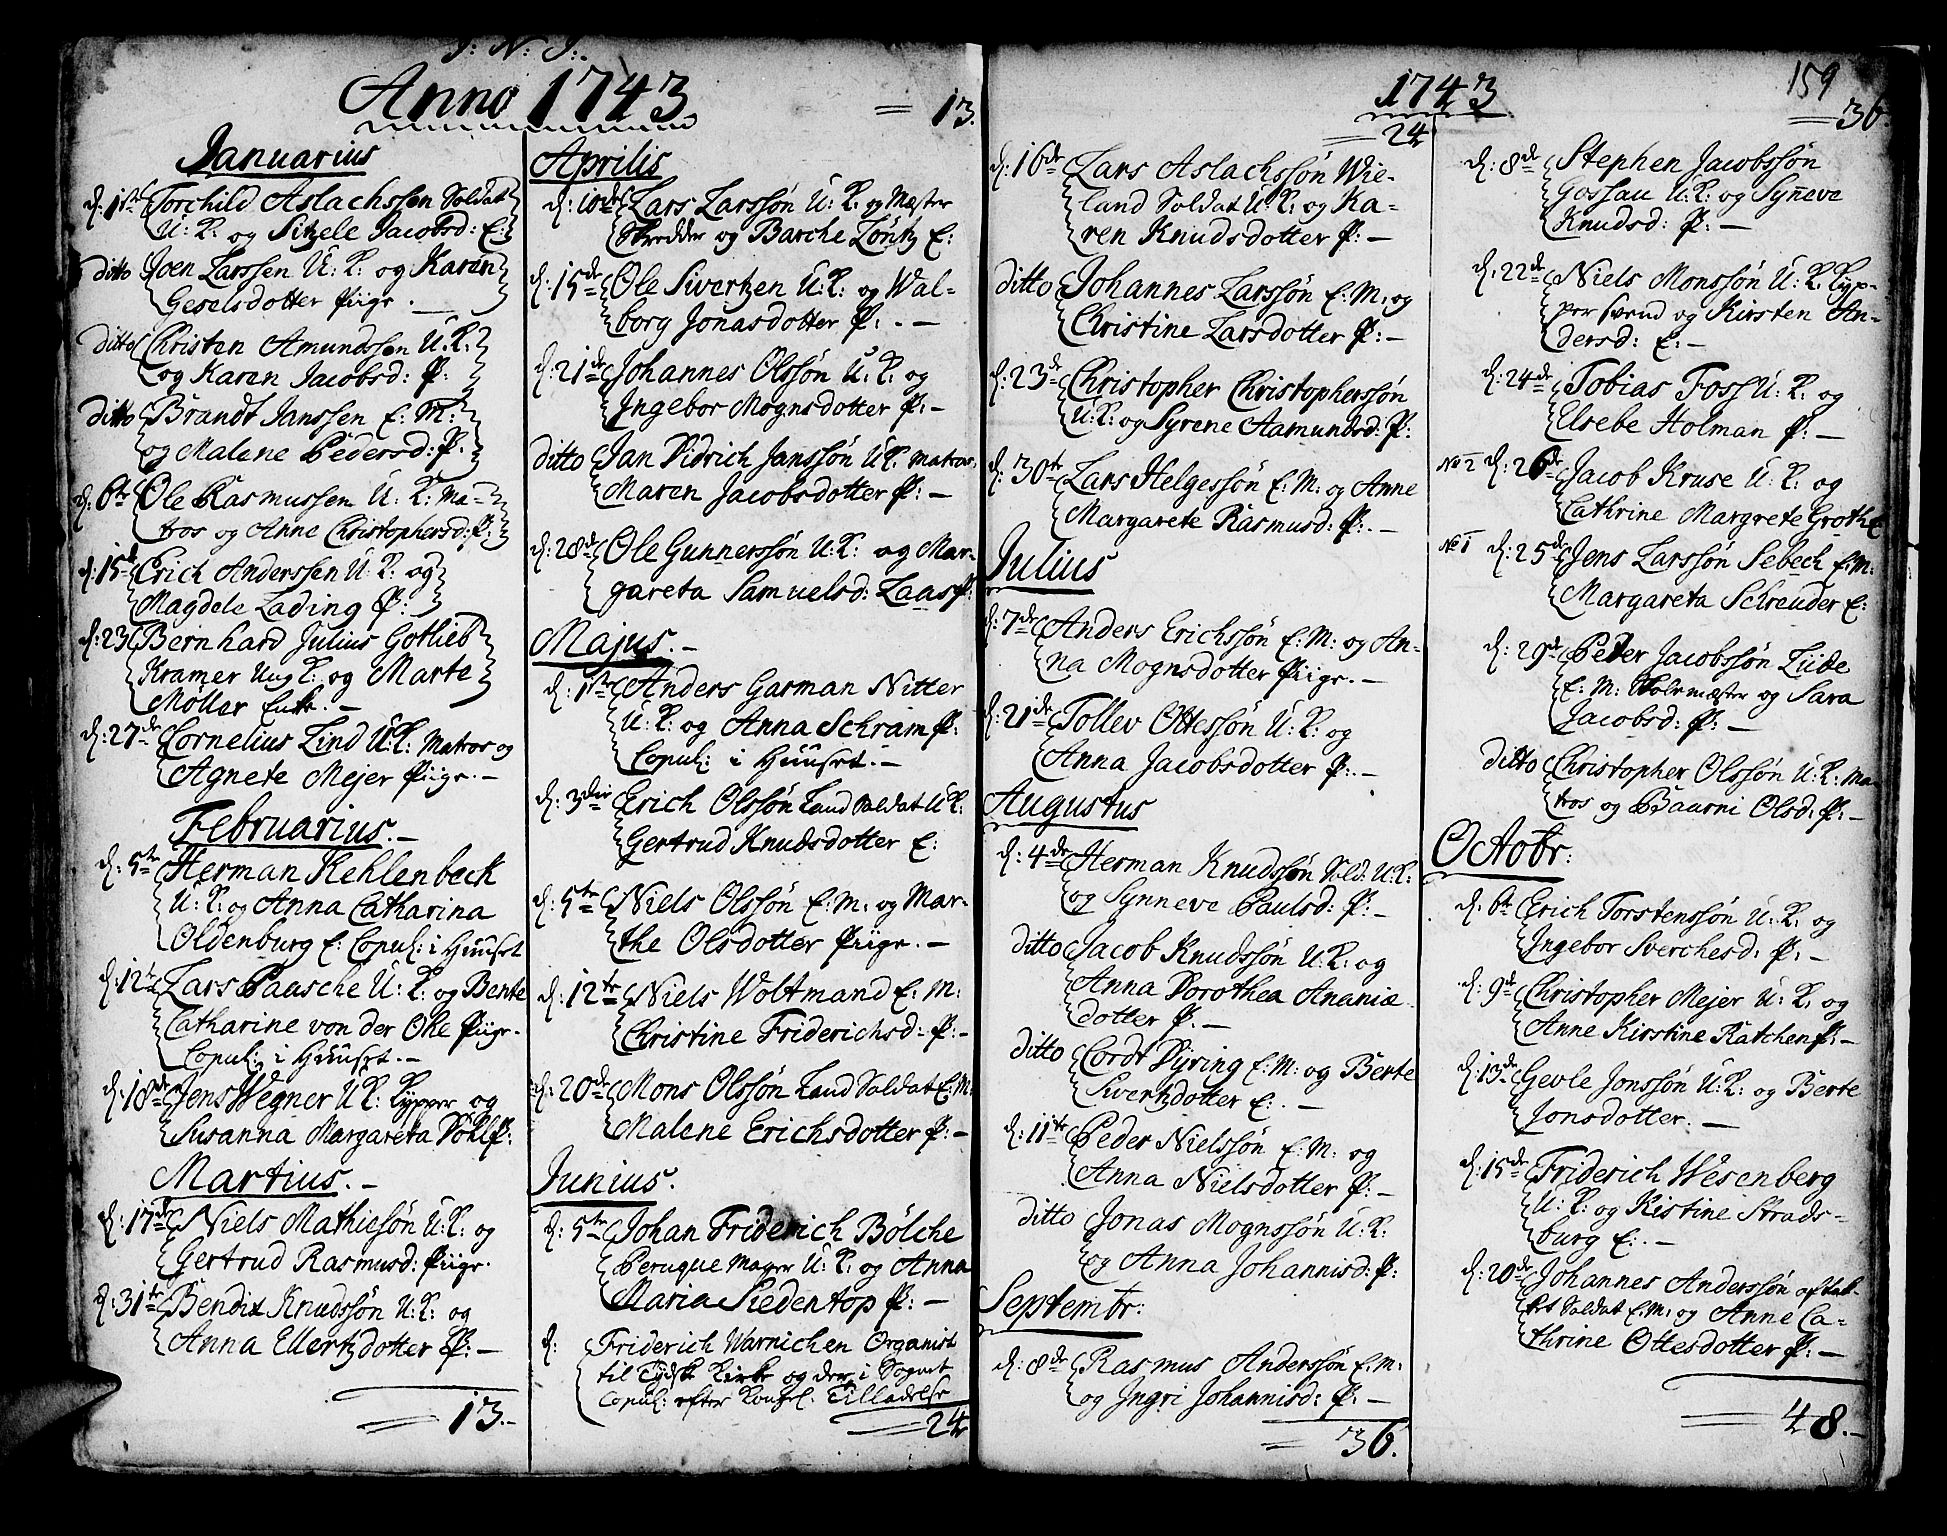 J: N: J:.
Anno 1743
= 13.
Januarius
d: 1ste Torchild Aslachssen Soldat
U: K: og Sitzele Jacobsd: E:
ditto Joen Larssen U: K: og Karen
Geselsdotter Piige. —
ditto Christen Amundssen U: K:
og Karen Jacobsd: P:
ditto Brandt Janssen E: M:
og Malene Pedersd: P:
d: 6te Ole Rasmussen U: K: Ma-
tros og Anne Christophersd: P:
d: 15de Erich Anderssen U: K: og
Magdele Lading P:
d: 23 Bernhard Julius Gotlieb
Kramer Ung K: og Marte
Möller Enke. —
d: 27de Cornelius Lind U: K: Matros og
Agnete Mejer Piige. —
Februarius. —
d: 5te Herman Kehlenbeck
U: K: og Anna Catharina
Oldenburg E: Copul: i Huuset
d: 12te Lars Paasche U: K: og Bente
Catharine von der Ohe Piige.
Copul: i Huuset. —
d: 18de Jens Wegner U: K: Kypper og
Susanna Margareta Döhl P:
Martius. —
d: 17de Niels Mathiesön U: K: og
Gertrud Rasmusd: Piige.
d: 31te Bendix Knudssön U: K: og
Anna Ellertzdotter P: —
13. —
Aprilis
d: 10de Lars Larssön U: K: og Mester
Skredder og Barche Löntz E:
d: 15de Ole Sivertzen U: K: og Wal-
borg Jonasdotter P: . —
d: 21de Johannes Olssön U: K: og
Ingebor Mognsdotter P: —
ditto Jan Didrich Janssön U: K: Matros,
Maren Jacobsdotter P: —
d: 28de Ole Gunnerssön U: K: og Mar-
gareta Samuelsd: Laas P:
Majus. —
d: 1ste Anders Garman Nitter
U: K: og Anna Schram P:
Copul: i Huuset. —
d: 3die Erich Olssön Land Soldat U: K:
Gertrud Knudsdotter E:
d: 5te Niels Olssön E: M: og Mar-
the Olsdotter Piige. —
d: 12te Niels Woltmand E: M:
Christine Friderichsd: P: —
d: 20de Mons Olssön Land Soldat E: M:
Malene Erichsdotter P: —
Junius.
d: 5te Johan Friderich Bölche
Peruque Mager U: K: og Anna
Maria Siedentop P: —
d: Friderich Warnichen Organist
til Tydske Kirke og der i Sognet
Copul: efter Kongel: Tilladelse
24
1743
24
d: 16de Lars Aslachssön Wie-
land Soldat U: K: og Ka-
ren Knudsdotter P: —
ditto Johannes Larssön E: M: og
Christine Larsdotter P: —
d: 23de Christopher Christopherssön
U: K: og Syrene Aamundsd: P:
d: 30te Lars Helgessön E: M: og Anne
Margarete Rasmusd: P: . —
Julius
d: 7de Anders Erichssön E: M: og An-
na Mognsdotter Piige. —
d: 21de Tollev Ottessön U: K: og
Anna Jacobsdotter P: . —
Augustus
d: 4de Herman Knudssön Sold: U: K:
og Synneve Paulsd: P: —
ditto Jacob Knudssön U: K: og
Anna Dorothea Ananiæ
dotter P: —
ditto Cordt Dyring E: M: og Berte
Sivertzdotter E: . —
d: 11te Peder Nielssön E: M: og
Anna Nielsdotter P: —
ditto Jonas Mognssön U: K:
og Anna Johannisd: P:
Septembr:
d: 8de Rasmus Anderssön E: M:
og Ingri Johannisd: P: —
36.
159
36.
d: 8de Stephen Jacobssön
Gossau U: K: og Syneve
Knudsd: P: —
d: 22de Niels Monssön U: K: Kyp-
per svend og Kirsten An-
dersd: E: —
d: 24de Tobias Foss U: K: og
Elsebe Holman P: —
No 2 d: 26de Jacob Kruse U: K: og
Cathrine Margrete Groth E
No 1 d: 25de Jens Larssön Sebech E: M:
Margareta Schreuder E:
d: 29de Peter Jacobssön Lüde
E: M: Skolemester og Sara
Jacobsd: P: —
ditto Christopher Olssön U: K: Ma-
tros og Baarni Olsd: P: —
Octobr:
d: 6te Erich Torstenssön U: K: og
Ingebor Sverchesd: P: —
d: 9de Christopher Mejer U: K: og
Anne Kirstine Ratchen P: —
d: 13de Gevle Jonssön U: K: og Berte
Jonsdotter. —
d: 15de Friderich Wesenberg
U: K: og Kistine Strads-
burg E: . —
d: 20de Johannes Anderssön aftak-
ket Soldat E: M: og Anne Ca-
thrine Ottesdotter P: —
48. —